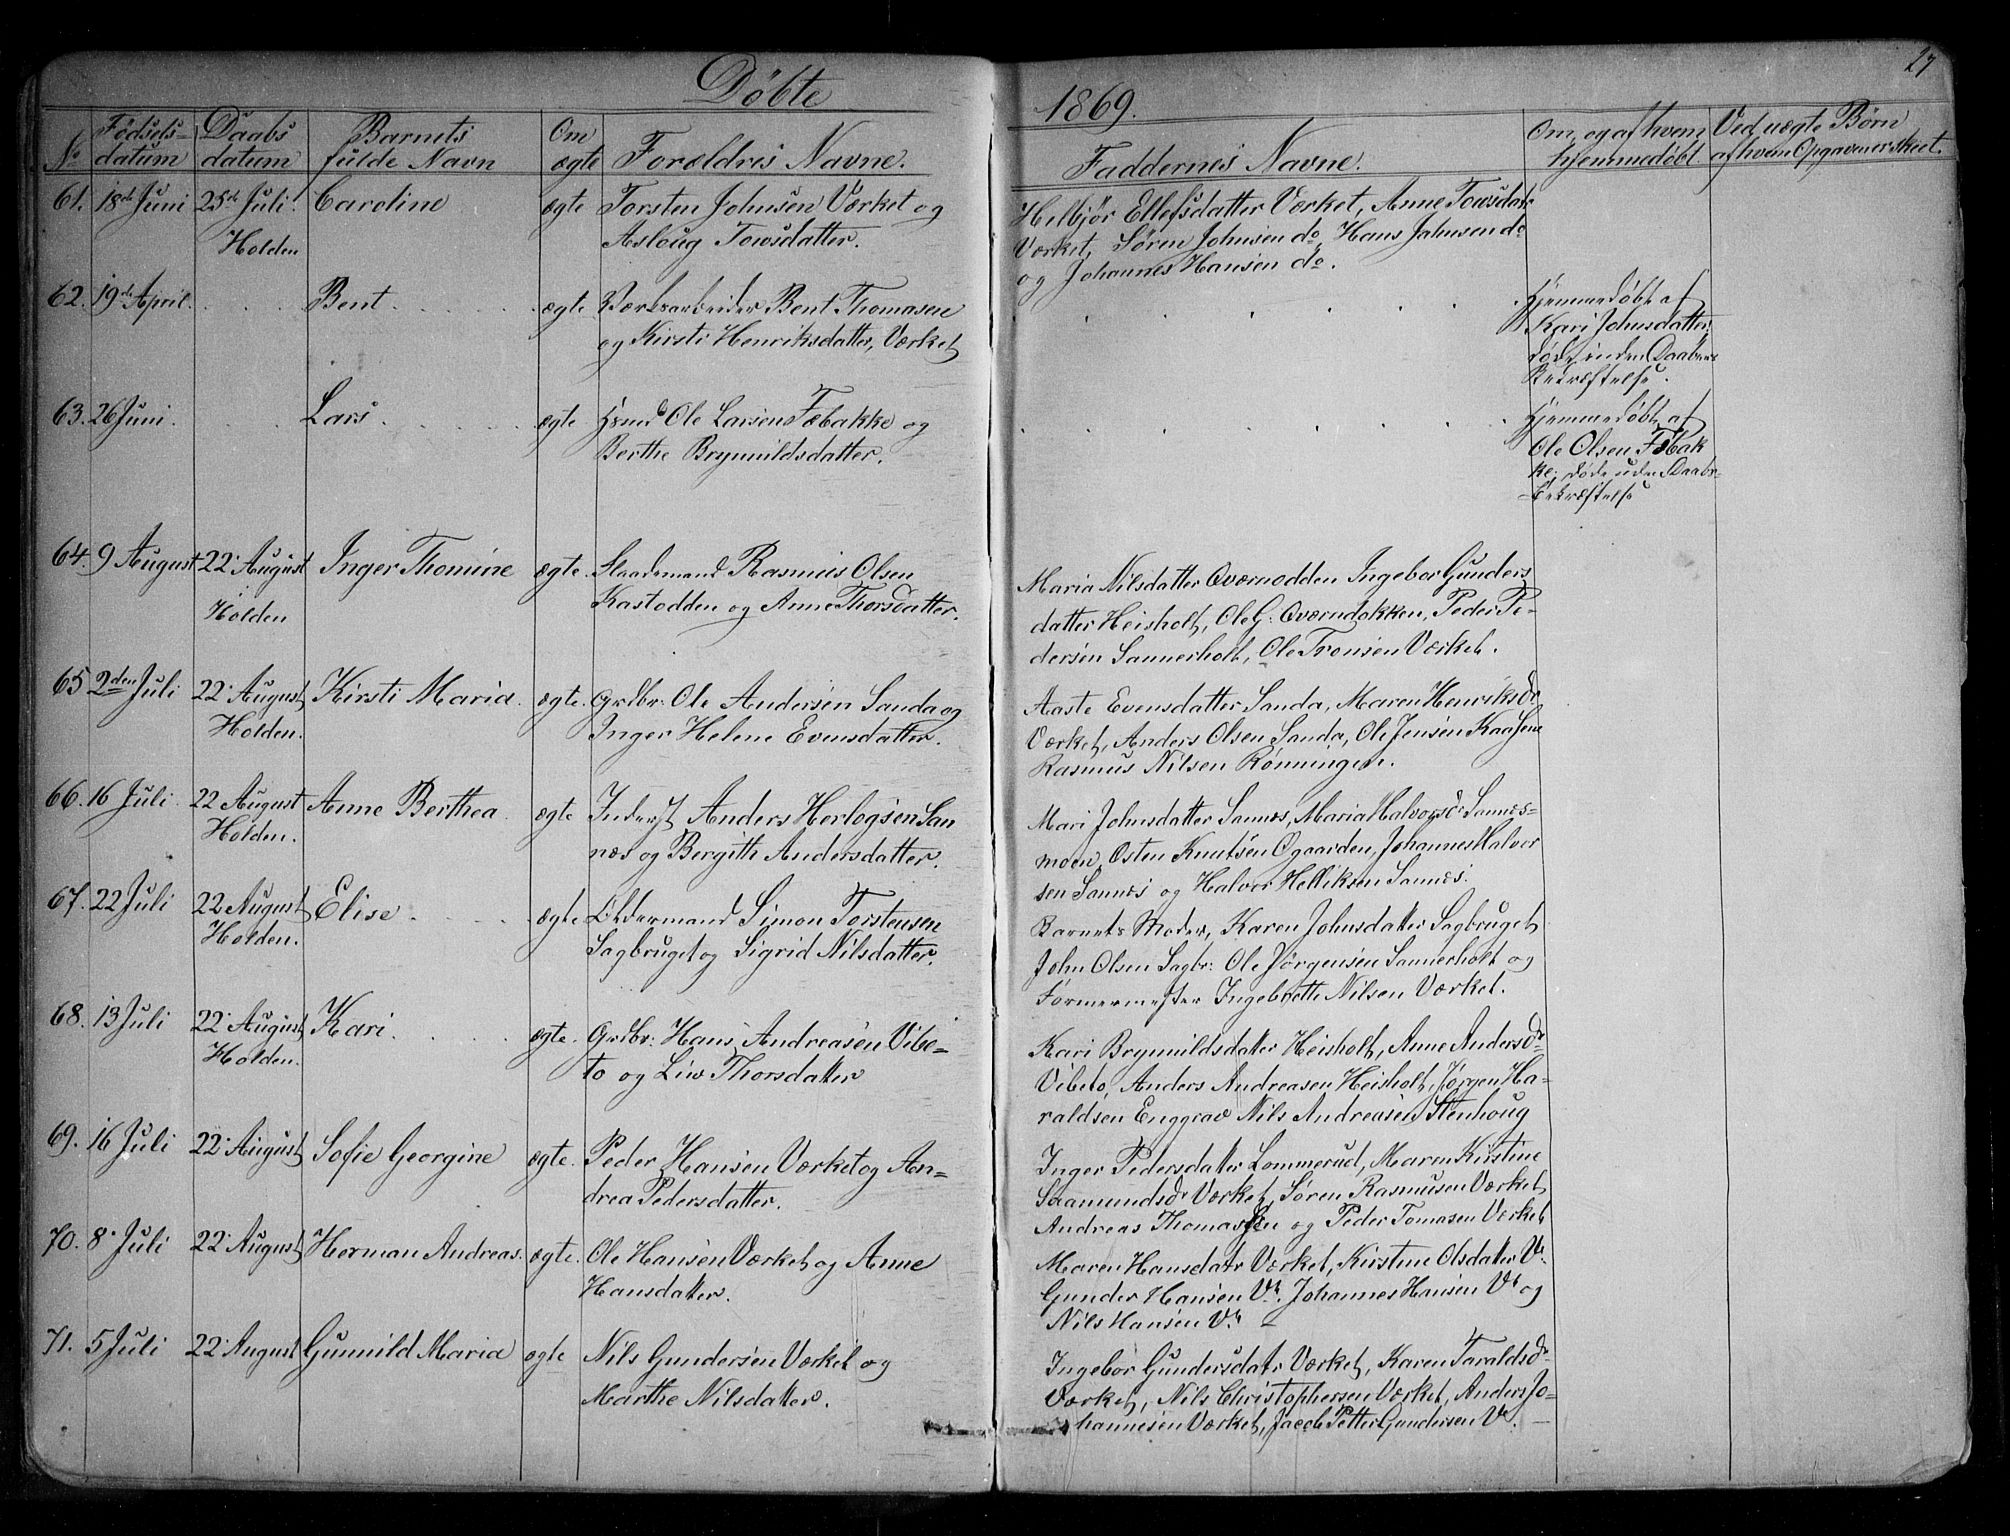 27
Døbte
1869.
No
Fødsels-
datum
Daabs
datum
Barnets
fulde Navn
Om
ægte
Forældres Navne.
Faddernes Navne.
Om, og af hvem
hjemmedøbt.
Ved uægte Børn
af hvem Opgaven er skeet.
61. 18de Juni 25de Juli. Caroline ægte Torsten Johnsen Værket og
Holden Asloug Towsdatter.
Helbjør Ellefsdatter Værket, Anne Towsdatr
Værket, Søren Johnsen do, Hans Johnsen do
og Johannes Hansen do.
62. 19de April. Bent. ægte Værksarbeider Bent Thomasen
og Kirsti Henriksdatter, Værket
Hjemmedøbt af
Kari Johnsdatter;
døde inden Daabens
Bekræftelse.
63. 26 Juni. Lars. ægte Hsmd Ole Larsen Fæbakke og
Berthe Brynnildsdatter.
Hjemmedøbt af
Ole Olsen Fæbak
ke; døde uden Daabs-
bekræftelse
64. 9 August 22 August Inger Thomine ægte. Rasmus Olsen
Holden Kastodden og Anne Thorsdatter.
Maria Nilsdatter Qværnodden Ingebor Gunders
datter Heisholt, Ole G. Qværndokken, Peder Pe-
dersen Sannerholt, Ole Tronsen Værket.
65 2den Juli 22 August Kirsti Maria. ægte. Grdbr: Ole Andersen Sanda og
Holden. Inger Helene Evensdatter.
Aaste Evensdatter Sanda, Maren Henriksdr
Værket, Anders Olsen Sanda, Ole Jensen Kaasene
Rasmus Nilsen Rønningen.
66. 16 Juli. 22 August Anne Berthea. ægte Inderst Anders Herlogsen San
Holden. næs og Bergith Andersdatter.
Mari Johnsdatter Sannæs, Maria Halvorsdr Sannæs-
moen, Osten Knutsen Øgaarden, Johannes Halvor
sen Sannæs og Halvor Helliksen Sannæs.
67. 22 Juli 22 August Elise. ægte Oldermand Simon Torstensen
Holden. Sagbruget og Sigrid Nilsdatter.
Barnets Moder, Karen Johnsdatter Sagbruget
John Olsen Sagbr: Ole Jørgensen Sannerholt og
Formermester Ingebrett Nilsen Værket.
68. 13 Juli 22 August Kari. ægte. Grdbr: Hans Andreasen Vibe-
Holden. to og Liw Thorsdatter
Kari Brynnildsdatter Heisholt, Anne Andersdr
Vibeto, Anders Andreasen Heisholt, Jørgen Ha-
raldsen Enggrav Nils Andreasen Stenhoug
69. 16 Juli 22 August Sofie Georgine ægte. Peder Hansen Værket og An-
drea Pedersdatter.
Inger Pedersdatter Lommerud, Maren Kirstine
Saamundsdr Værket, Søren Rasmusen Værket,
Andreas Thomassen og Peder Tomasen Værket
70. 8 Juli 22 August Herman Andreas. ægte. Ole Hansen Værket og Anne
Hansdatter.
Maren Hansdatr Værket, Kirstine Olsdatter Vt.
Gunder Hansen Vt. Johannes Hansen Vt og
Nils Hansen Vt.
71. 5 Juli 22 August Gunnild Maria ægte Nils Gundersen Værket og
Marthe Nilsdatter.
Ingebor Gundersdatr Værket, Karen Taraldsdr
Værket, Nils Christophersen Værket, Anders Jo-
hannesen Værket, Jacob Petter Gundersen Vt.